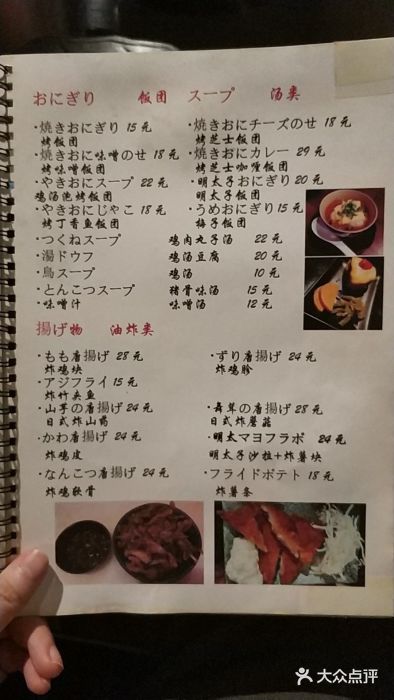 おにぎり 飯団 スープ 汤类
・焼きおにぎり 15元 ・焼きおにチーズのせ 18元
烤饭团 烤芝士饭团
・焼きおに味噌のせ 18元 ・焼きおにカレー 29元
烤味噌饭团 烤芝士咖喱饭团
・やきおにスープ 22元 ・明太子おにぎり 20元
鸡汤泡烤饭团 明太子饭团
・やきおにじゃこ 18元 ・うめおにぎり 15元
烤丁香鱼饭团 梅子饭团
・つくねスープ 鸡肉丸子汤 22元
・湯ドウフ 鸡汤豆腐 20元
・鳥スープ 鸡汤 10元
・とんこつスープ 猪骨味汤 15元
・味噌汁 味噌汤 12元
揚げ物 油炸类
・もも唐揚げ 28元 ・ずり唐揚げ 24元
炸鸡块 炸鸡胗
・アジフライ 15元
炸竹夹鱼
・山芋の唐揚げ 24元 ・舞茸の唐揚げ 28元
日式炸山药 日式炸蘑菇
・かわ唐揚げ 24元 ・明太マヨフラポ 24元
炸鸡皮 明太子沙拉+炸薯块
・なんこつ唐揚げ 24元 ・フライドポテト 18元
炸鸡软骨 炸薯条
大众点评